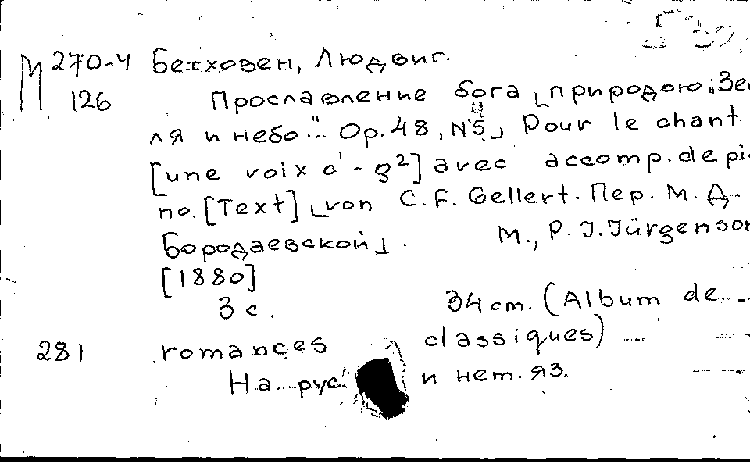 М 270-4 Бетховен, Людвиг.
126 Прославление бога [„природою: Зе
ля и небо“. Op. 48, N 5.] Pour le chant
[une voix c' - g²] avec accomp. de pi
no. [Text] [von C. F. Gellert. Пер. М. Д.
Бородаевской]. М., P. J. Jürgenson
[1880]
3 с. 34 cm. (Album de
281 romances classiques)
На рус. и нем. яз.